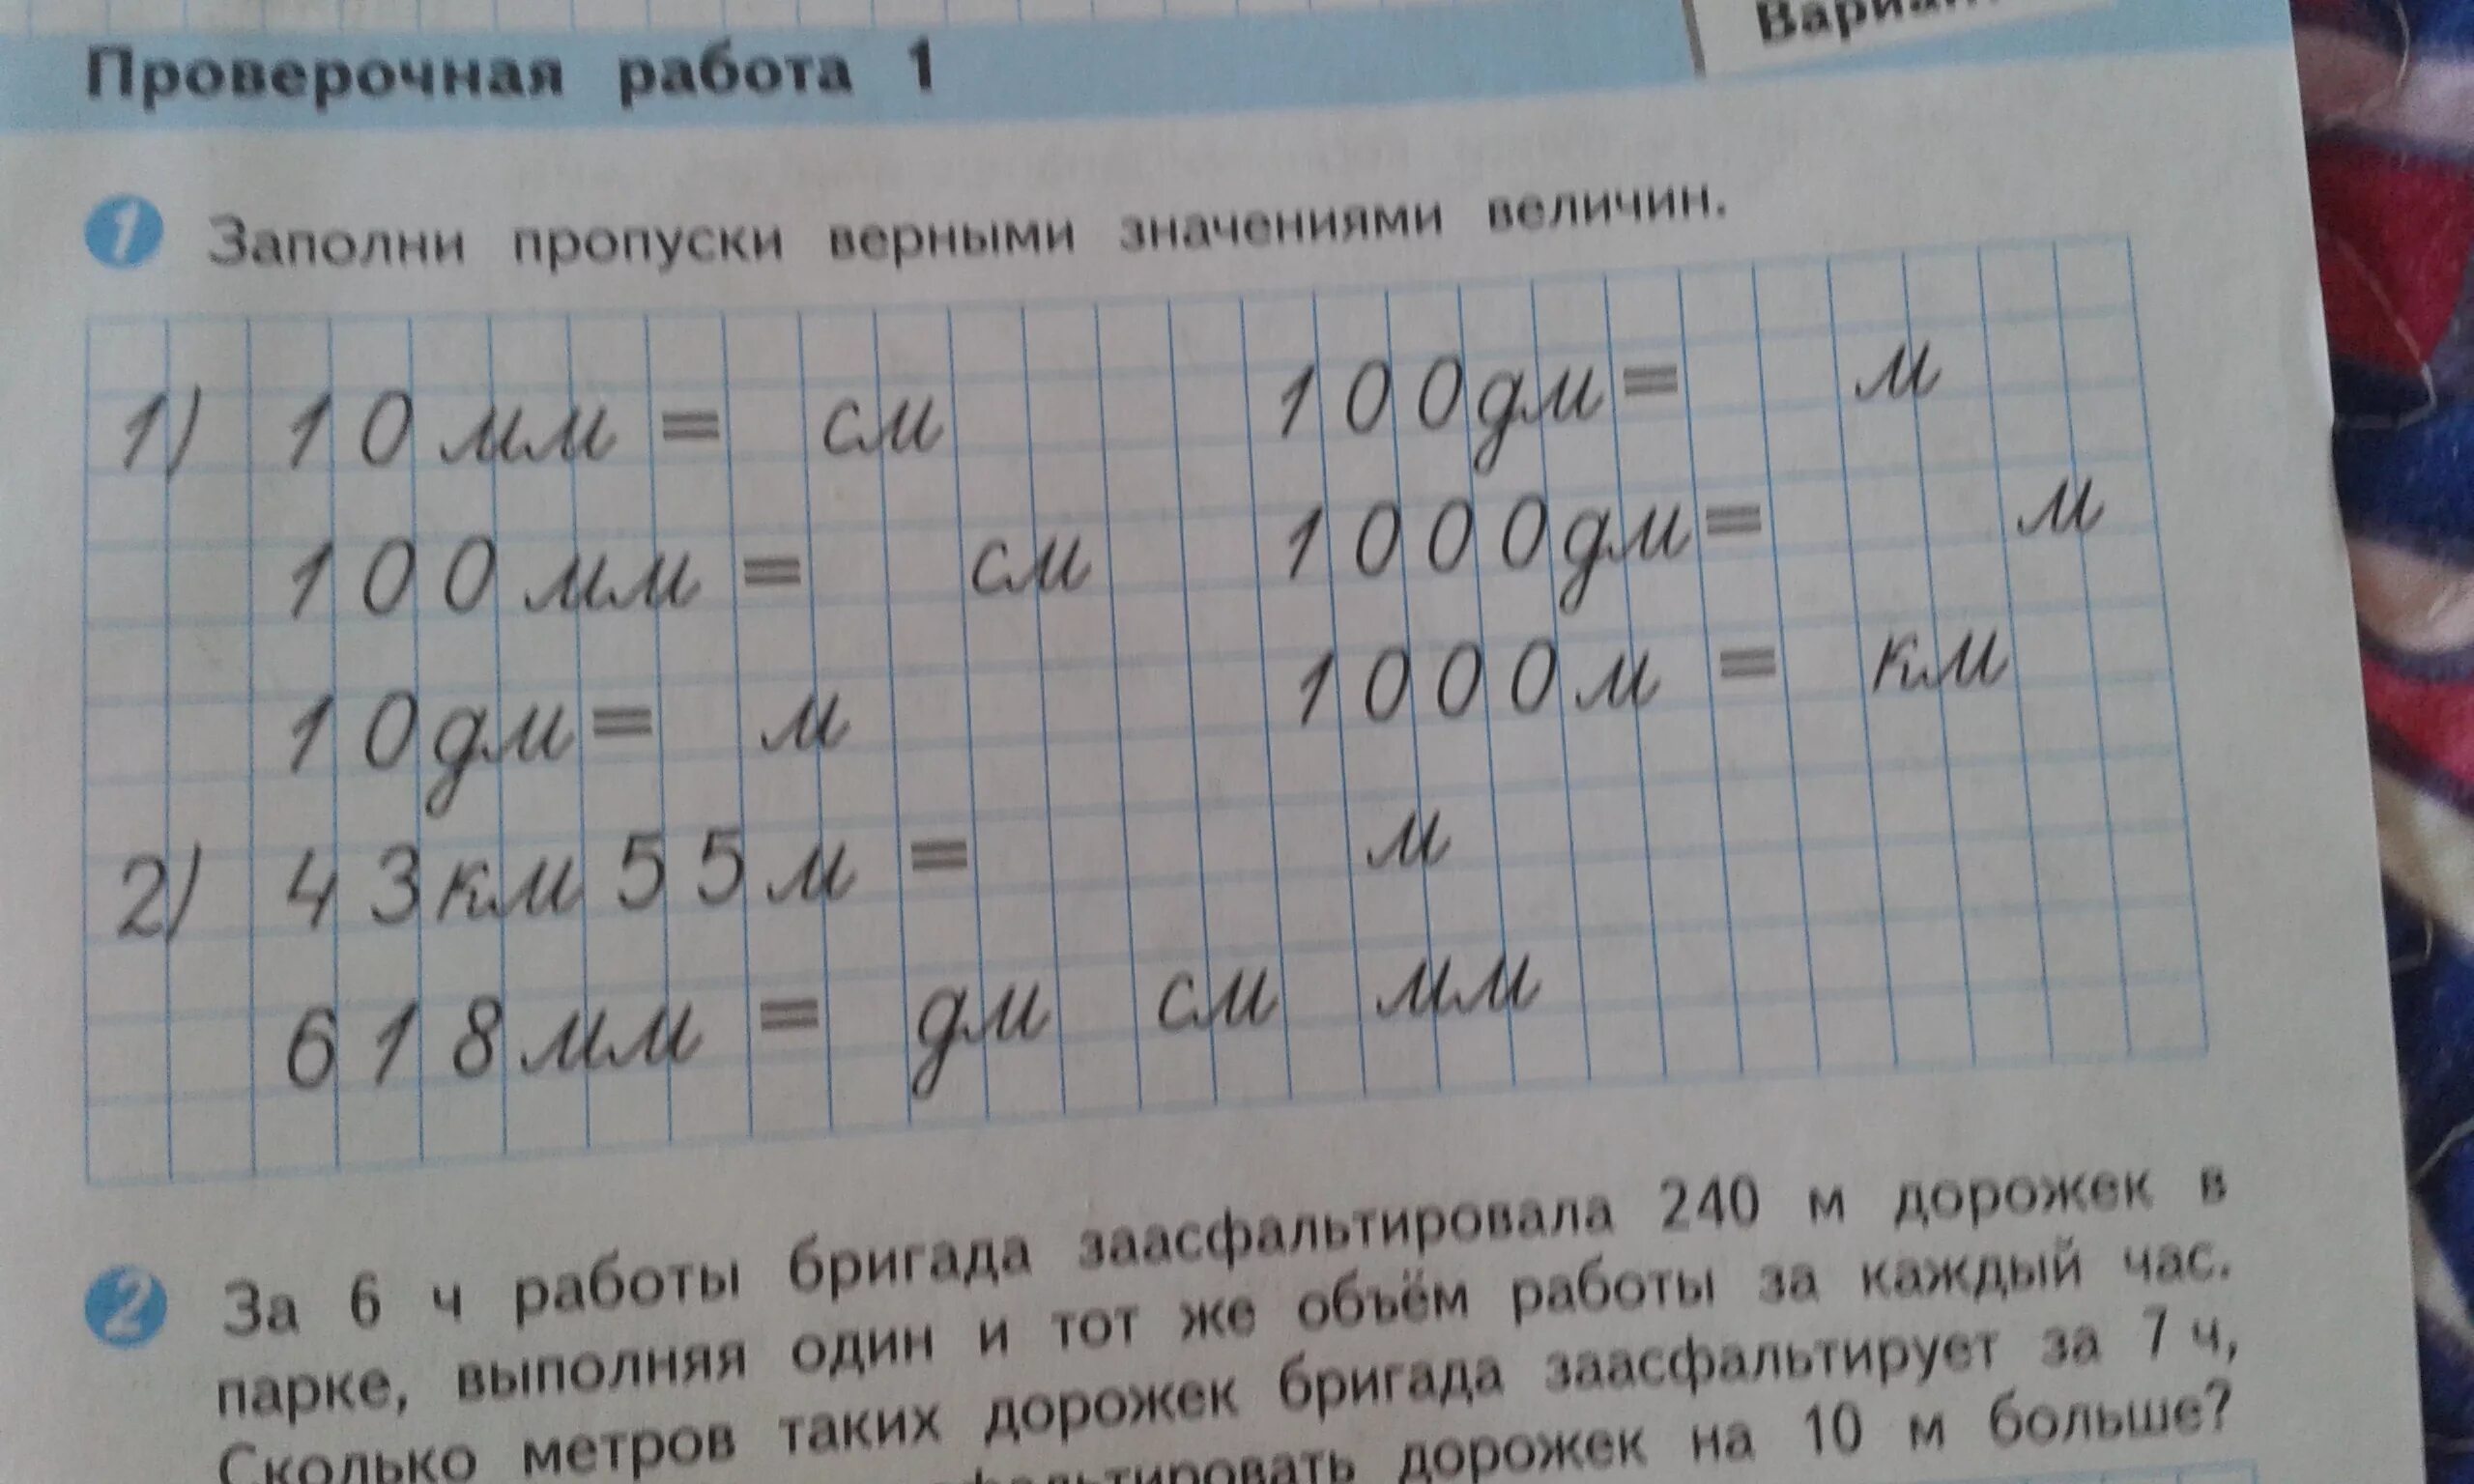 Проверочная работа 1
1 Заполни пропуски верными значениями величин.
1) 10 мм = см 100 дм = м
100 мм = см 1000 дм = м
10 дм = м 1000 м = км
2) 43 км 55 м = м
618 мм = дм см мм
2 За 6 ч работы бригада заасфальтировала 240 м дорожек в
парке, выполняя один и тот же объём работы за каждый час.
Сколько метров таких дорожек бригада заасфальтирует за 7 ч,
дорожек на 10 м больше?